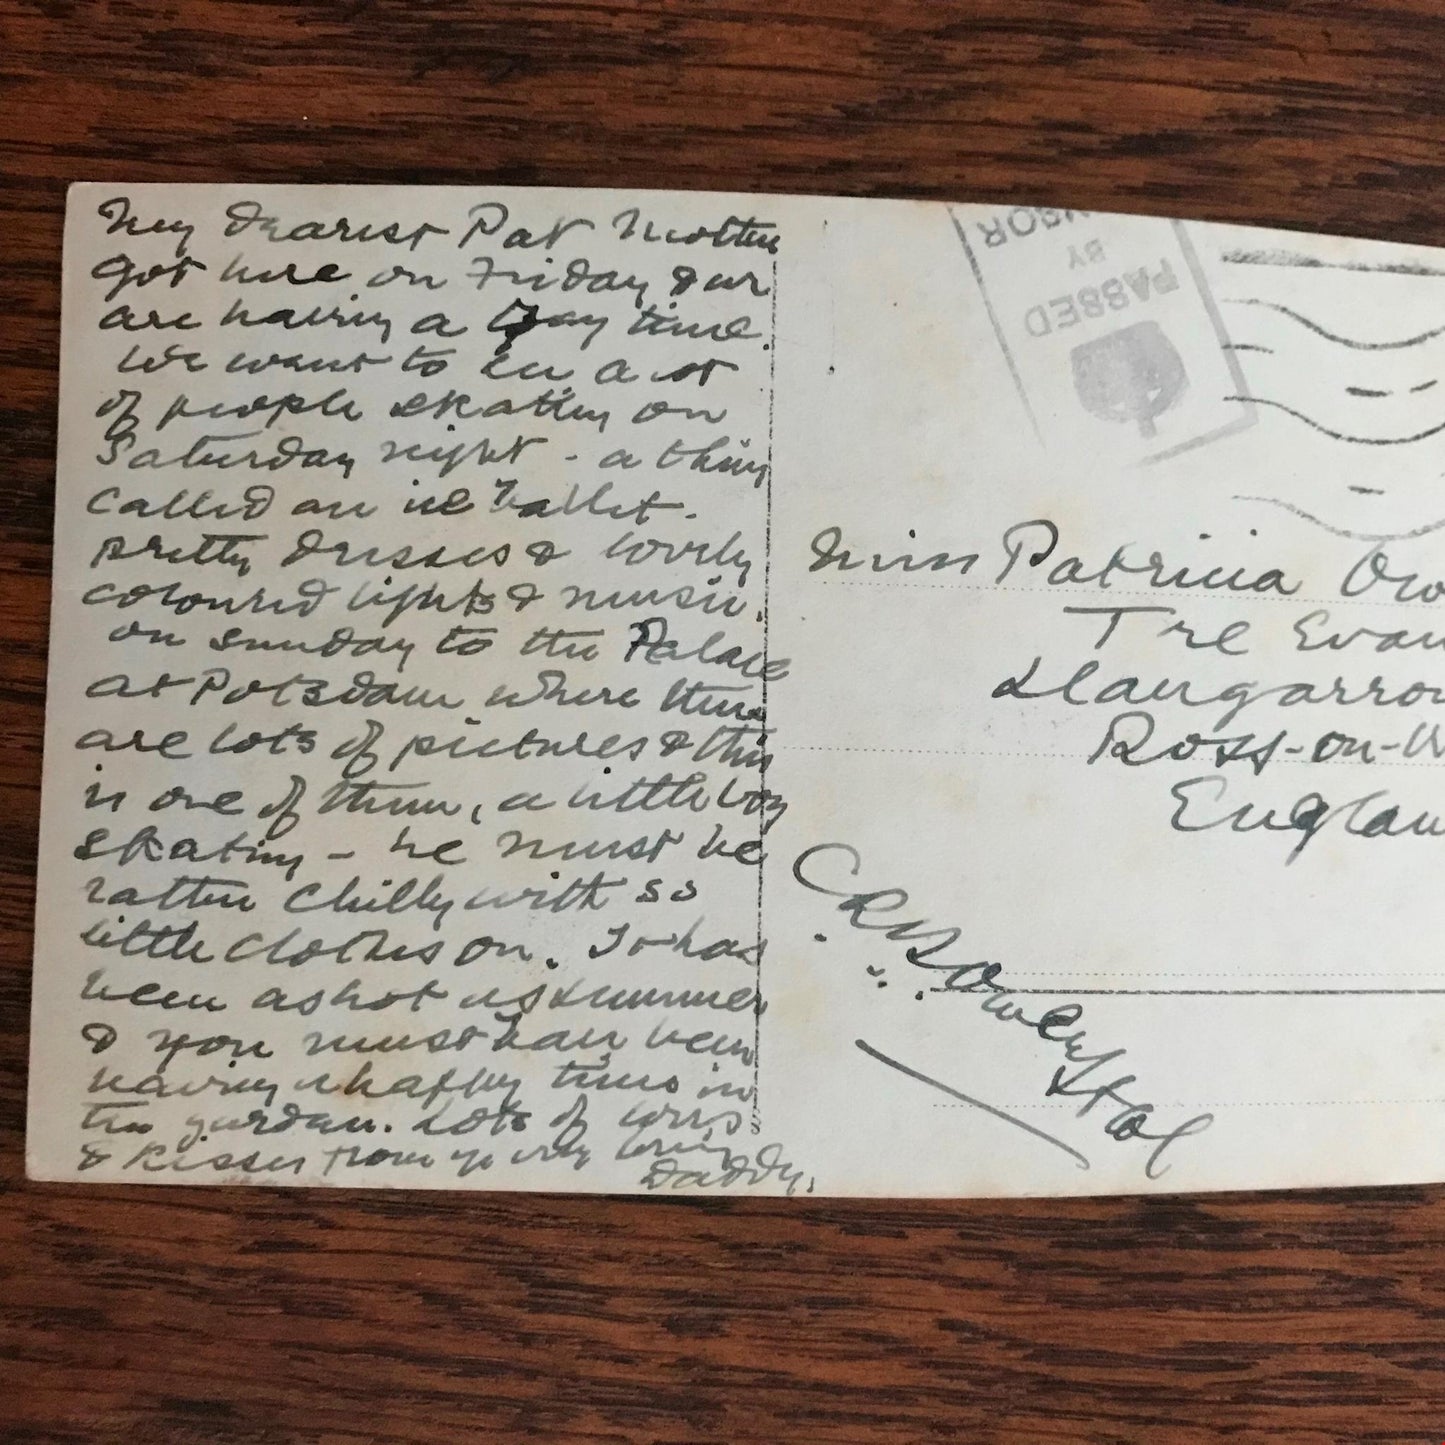 My dearest Pat Mother
got here on Friday & we
are having a gay time.
We went to see a lot
of people skating on
Saturday night - a thing
called an ice ballet.
pretty dresses & lovely
coloured lights & music.
on Sunday to the Palace
at Potsdam where there
are lots of pictures & this
is one of them, a little boy
skating - he must be
rather chilly with so
little clothes on. It has
been as hot as summer
& you must have been
having a happy time in
the garden. Lots of love
& kisses from your loving
Daddy.
PASSED
BY
NSOR
Miss Patricia Ow
Tre Evan
Llangarron
Ross-on-W
Englan